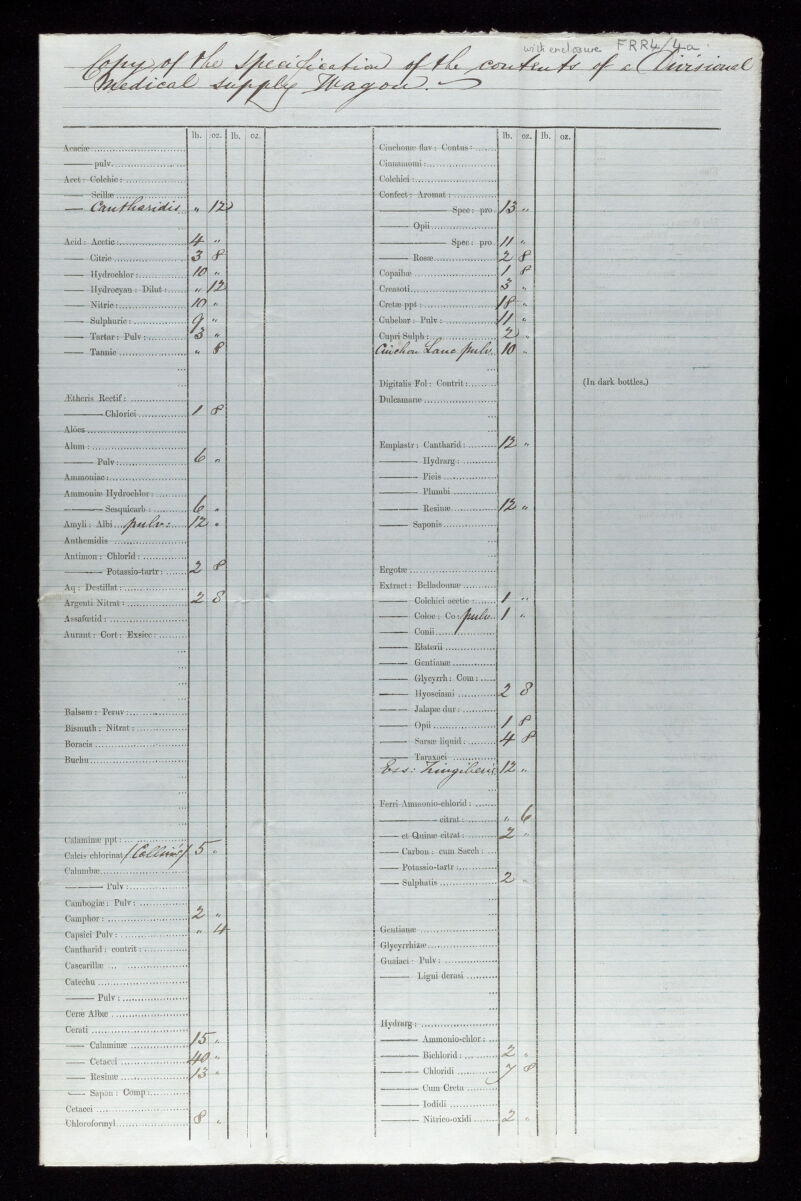 with enclosure FRR4/4a
Copy of the specification of the contents of a Divisional
Medical supply Wagon.
lb. oz. lb. oz.
Acaciæ
—— pulv.
Acet: Colchic:
—— Scillæ
— Cantharidis „ 12
Acid: Acetic: 4 „
—— Citric 3 8
—— Hydrochlor: 10 „
—— Hydrocyan: Dilut: „ 12
—— Nitric: 10 „
—— Sulphuric: 9 „
—— Tartar: Pulv: 3 „
—— Tannic „ 8
Ætheris Rectif:
—— Chlorici 1 8
Alöes
Alum:
—— Pulv: 6 „
Ammoniac:
Ammoniæ Hydrochlor:
—— Sesquicarb: 6 „
Amyli: Albi pulv: 12 „
Anthemidis
Antimon: Chlorid:
—— Potassio-tartr: 2 8
Aq: Destillat:
Argenti Nitrat: 2 8
Assafœtid:
Aurant: Cort: Exsicc:
Balsam: Peruv:
Bismuth: Nitrat:
Boracis
Buchu
Calaminæ ppt:
Calcis chlorinat (Collins') 5 „
Calumbæ
—— Pulv:
Cambogiæ: Pulv:
Camphor: 2 „
Capsici Pulv: „ 4
Cantharid: contrit:
Cascarillæ
Catechu
—— Pulv:
Ceræ Albæ
Cerati
—— Calaminæ 15 „
—— Cetacei 40 „
—— Resinæ 13 „
—— Sapon: Comp:
Cetacei
Chloroformyl 8 „
lb. oz. lb. oz.
Cinchonæ flav: Contus:
Cinnamomi:
Colchici
Confect: Aromat:
—— Spec: pro 13 „
—— Opii
—— Spec: pro 11 „
—— Rosæ 2 8
Copaibæ 1 8
Creasoti 3 „
Cretæ ppt: 18 „
Cubebar: Pulv: 11 „
Cupri Sulph: 2 „
Cinchon Lanc pulv. 10 „
Digitalis Fol: Contrit: (In dark bottles.)
Dulcamaræ
Emplastr: Cantharid: 12 „
—— Hydrarg:
—— Picis
—— Plumbi
—— Resinæ 12 „
—— Saponis
Ergotæ
Extract: Belladonnæ
—— Colchici acetic: 1 „
—— Coloc: Co: pulv. 1 „
—— Conii
—— Elaterii
—— Gentianæ
—— Glycyrrh: Com:
—— Hyosciami 2 8
—— Jalapæ dur:
—— Opii 1 8
—— Sarsæ liquid: 4 8
—— Taraxaci
Ess: Zingiberis 12 „
Ferri Ammonio-chlorid:
—— citrat: „ 6
—— et Quinæ citrat: 2 „
—— Carbon: cum Sacch:
—— Potassio-tartr:
—— Sulphatis 2 „
Gentianæ
Glycyrrhizæ
Guaiaci: Pulv:
—— Ligni derasi
Hydrarg:
—— Ammonio-chlor:
—— Bichlorid: 2 „
—— Chloridi 7 8
—— Cum Creta
—— Iodidi
—— Nitrico-oxidi 2 „